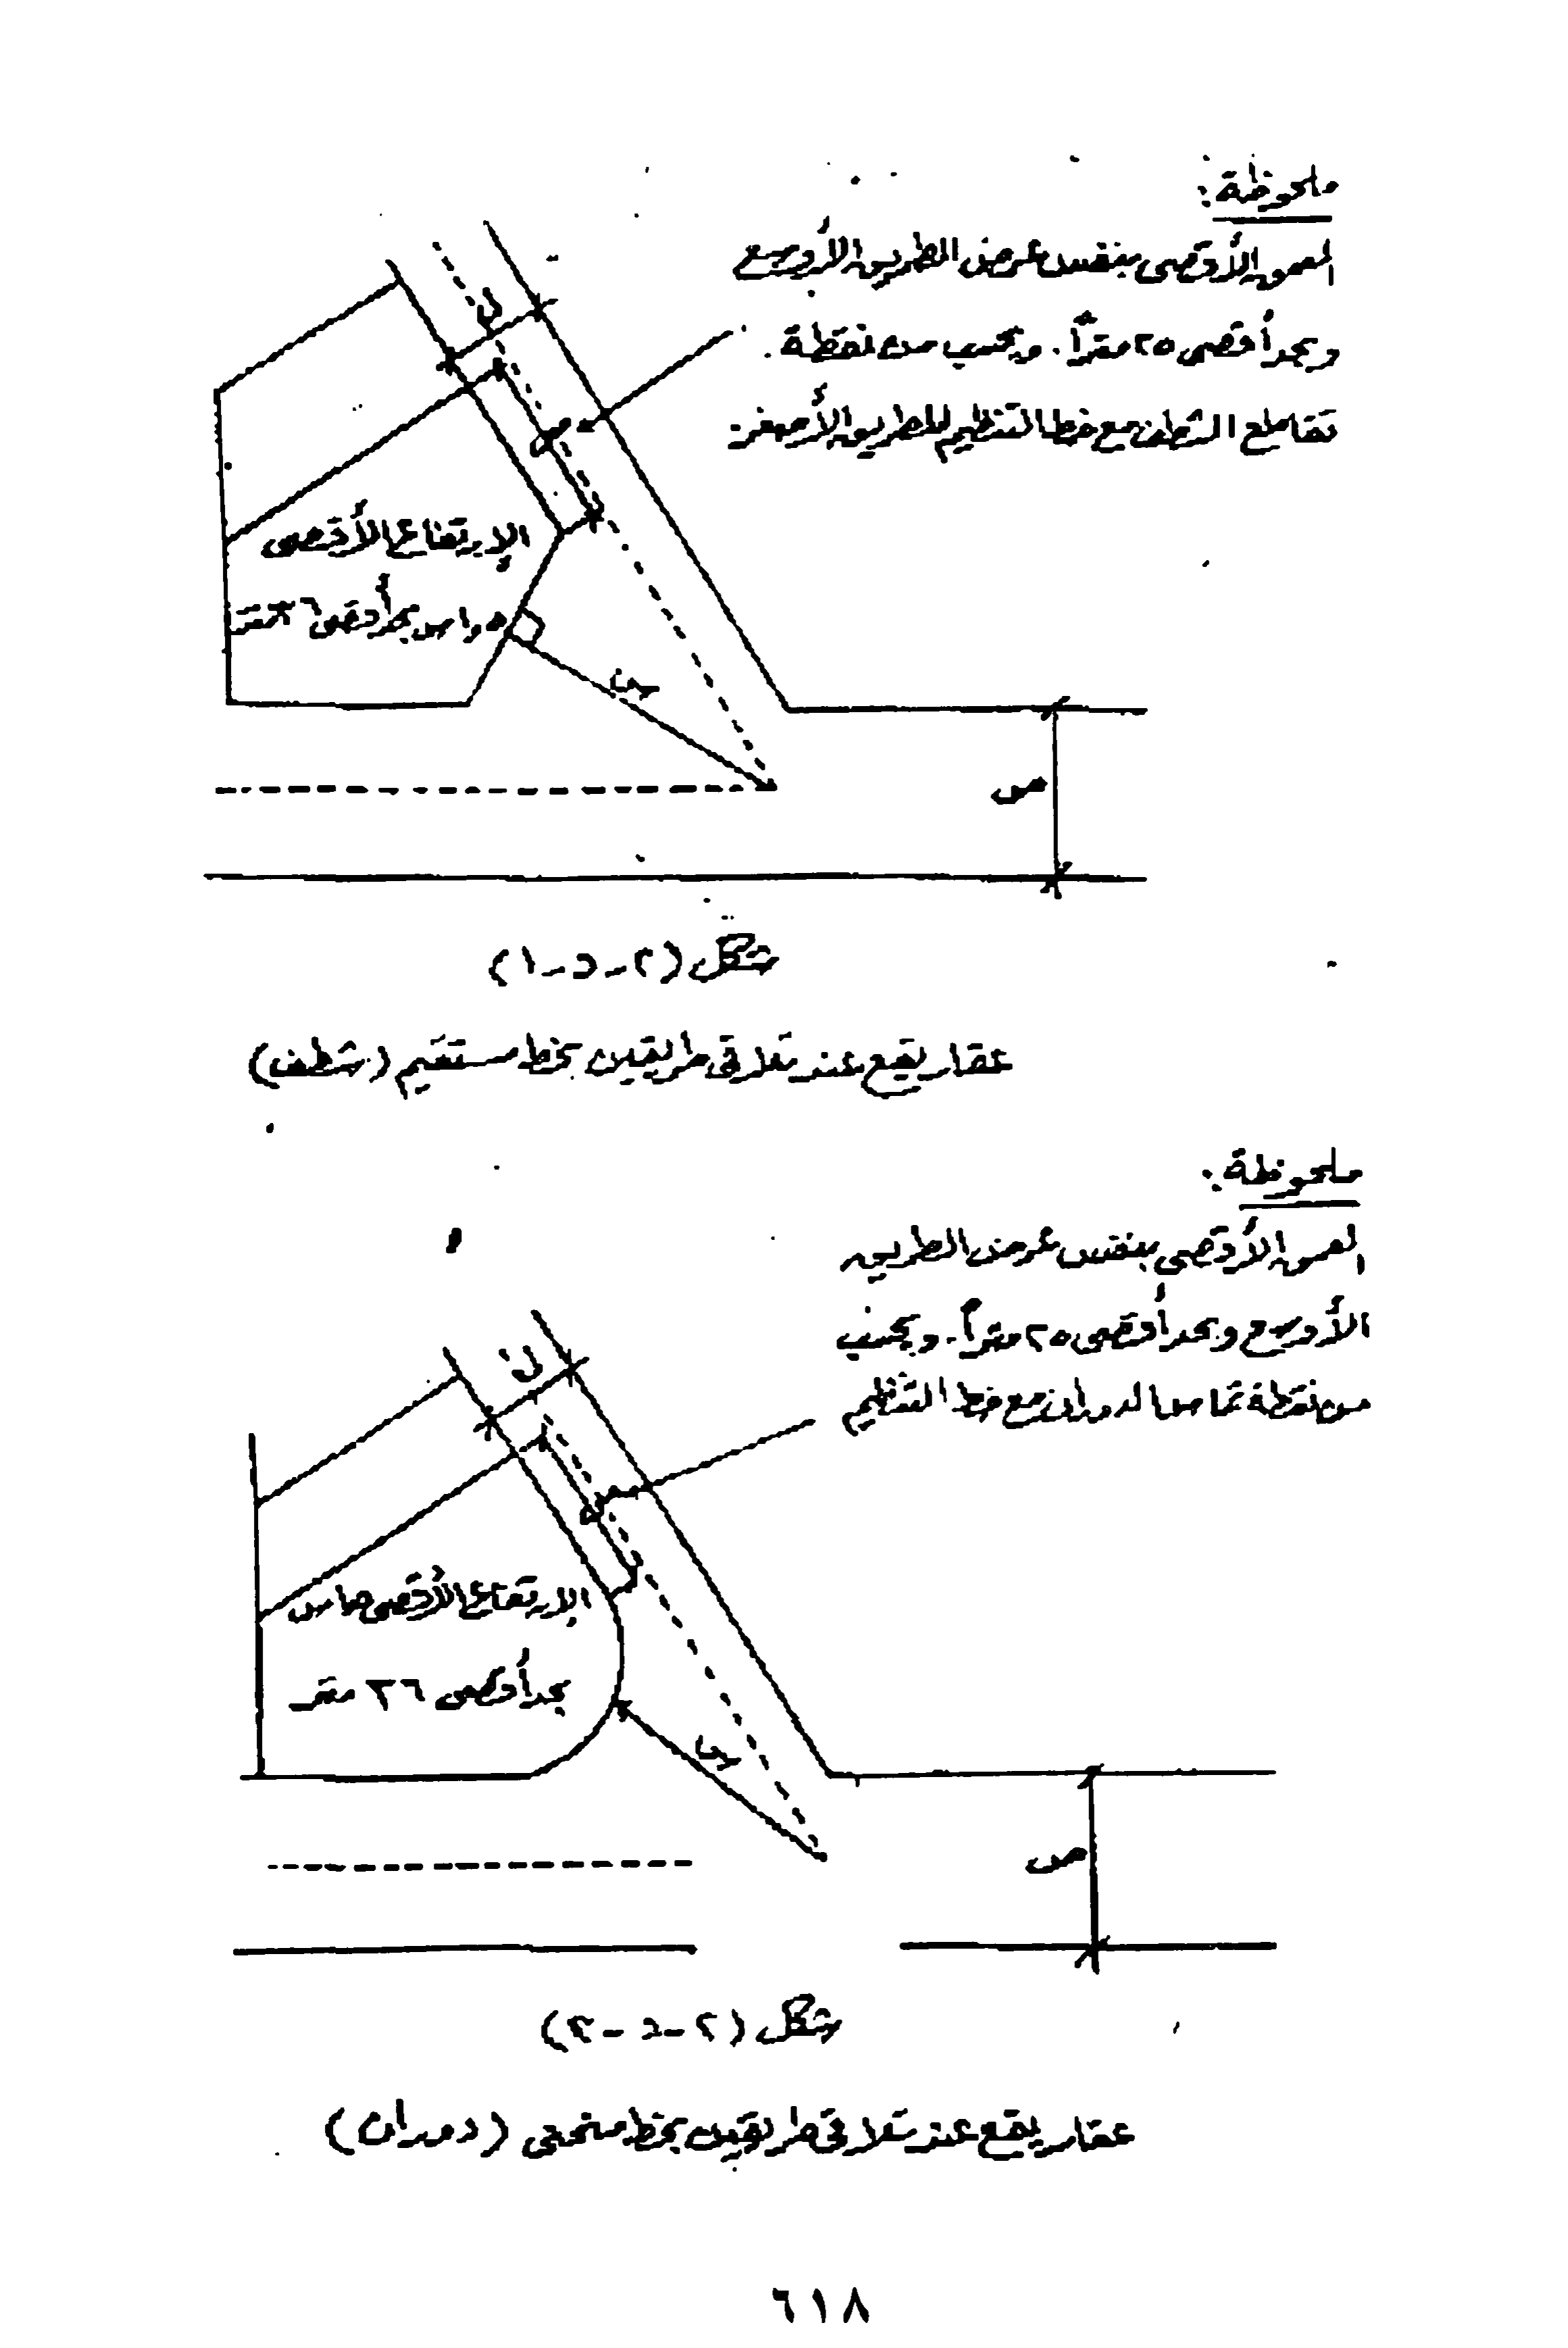 ملحوظة:
العمق الأقصى بنفس عرض الطريق الأوسع
وبحد أقصى ٢٥ متراً. ويحسب من نقطة
تقاطع الشطف مع خط التنظيم للطريق الأصغر.
ن
ص
الإرتفاع الأقصى
بحد أقصى ٣٦ متر
س
ص
شكل (٢-٥-١)
عقار يقع عند تلاقى طريقين بخط مستقيم (شطف)
ملحوظة:
العمق الأقصى بنفس عرض الطريق
الأوسع وبحد أقصى ٢٥ متراً. ويحسب
من نقطة تماس الدوران مع خط التنظيم
ن
الإرتفاع الأقصى
بحد أقصى ٣٦ متر
س
ص
شكل (٢-٥-٢)
عقار يقع عند تلاقى طريقين بخط منحنى (دوران)
٦١٨